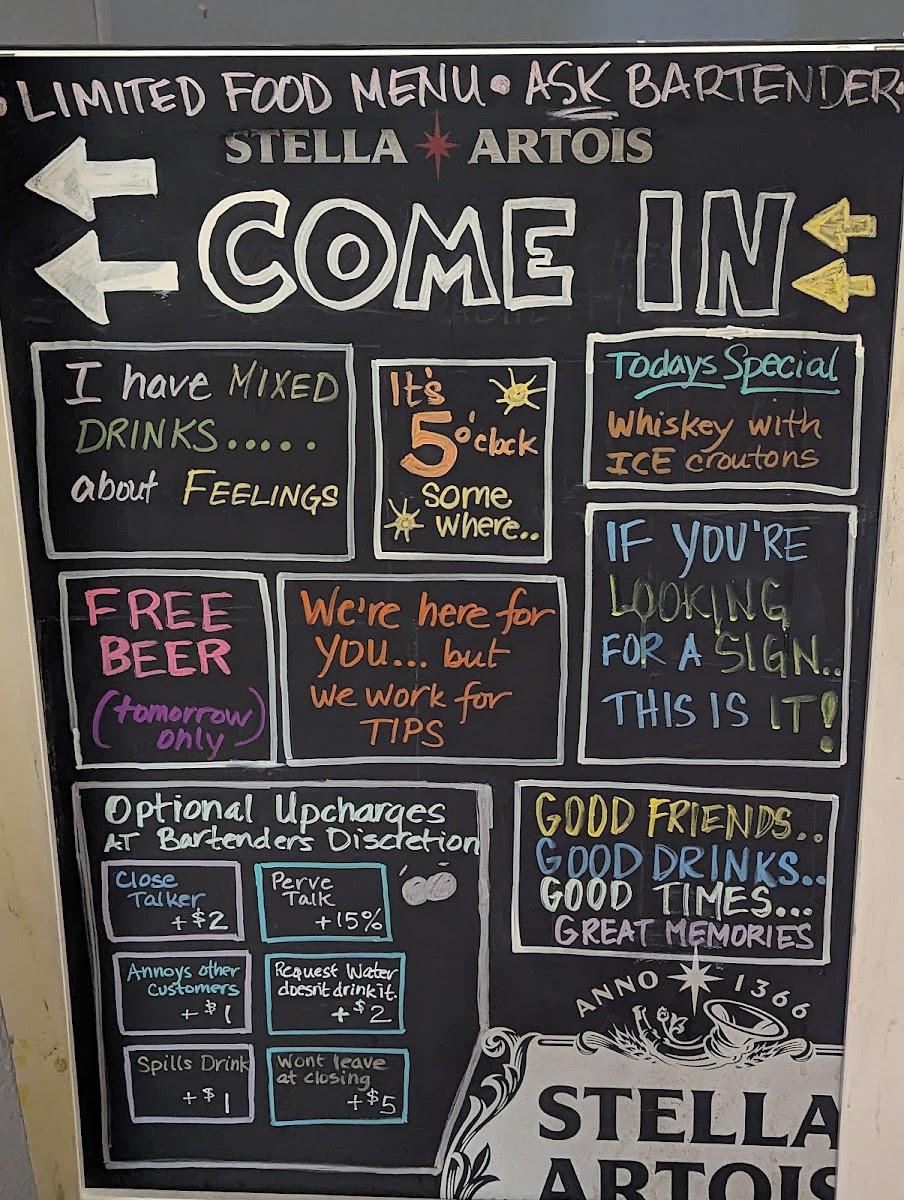 • LIMITED FOOD MENU • ASK BARTENDER •
STELLA ARTOIS
COME IN
I have MIXED
DRINKS.....
about FEELINGS
It's
5 o'clock
some
where..
Todays Special
Whiskey with
ICE croutons
IF YOU'RE
LOOKING
FOR A SIGN..
THIS IS IT!
FREE
BEER
(tomorrow
only)
We're here for
YOU... but
we work for
TIPS
Optional Upcharges
AT Bartenders Discretion
Close
Talker
+$2
Perve
Talk
+15%
Annoys other
customers
+$1
Request Water
doesnt drink it.
+$2
Spills Drink
+$1
Wont leave
at closing
+$5
GOOD FRIENDS..
GOOD DRINKS..
GOOD TIMES...
GREAT MEMORIES
ANNO 1366
STELLA
ARTOIS